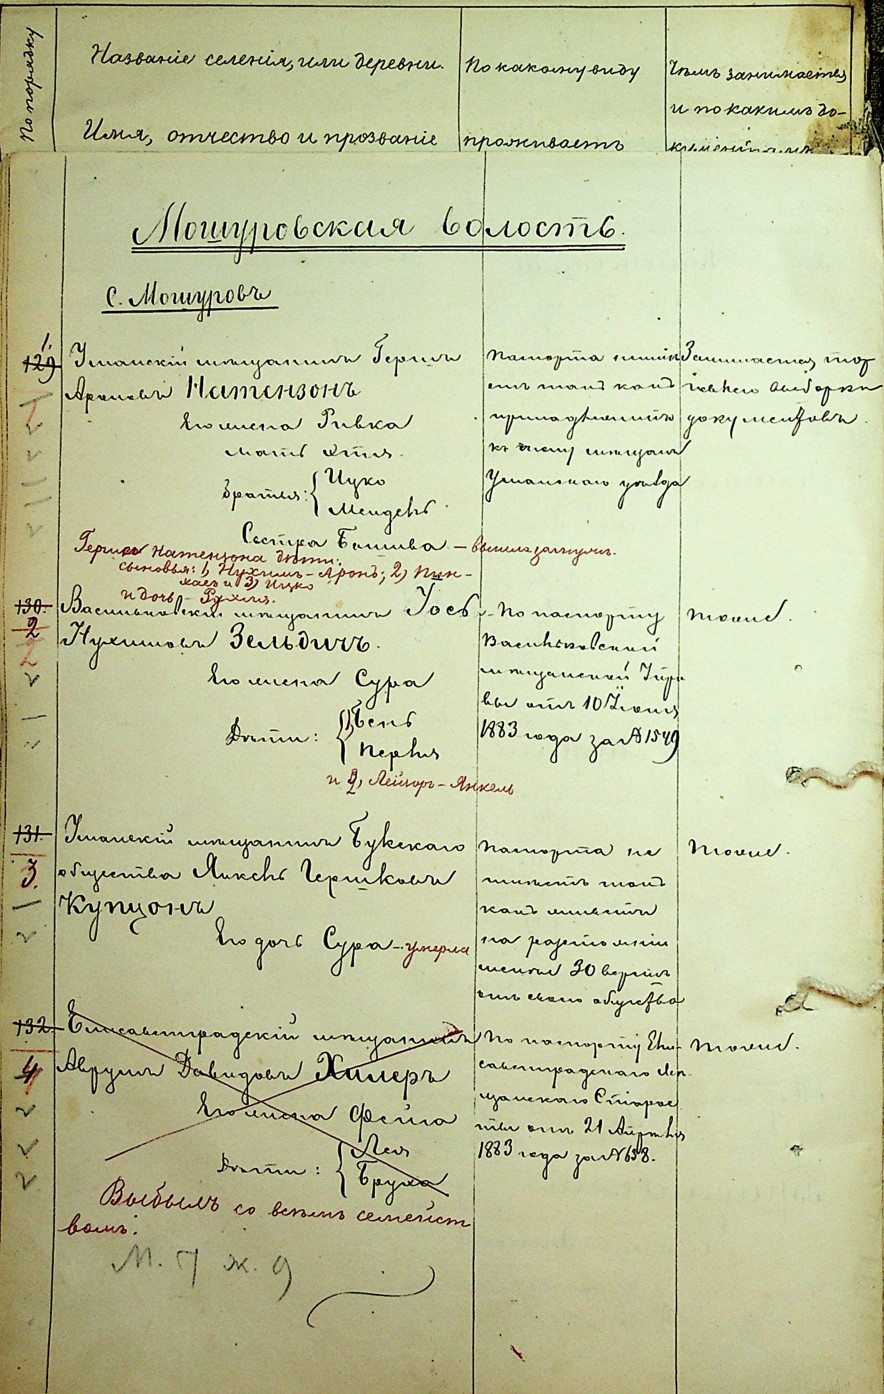 По порядку
Названіе селенія, или деревни.
Имя, отчество и прозваніе
По какому виду
проживаетъ
Чѣмъ занимается
и по какимъ до-
кументамъ
Мошуровская волость.
С. Мошуровъ
1.
129
Уманскій мѣщанинъ Гершъ
Ароновъ Натензонъ
Его жена Ривка
мать Этля.
Братья: { Ицко
Мендель
Сестра Башива – вышла замужъ.
Гершка Натензона дѣти:
сыновья: 1, Нухимъ-Аронъ; 2) Пин-
хасъ и 3) Ицко
и дочь – Рухля.
Паспорта не имѣ-
етъ такъ какъ
принадлежитъ
къ числу мѣщанъ
Уманскаго уѣзда
Занимается тор-
говлею безъ
документовъ.
130.
2
Васильковскій мѣщанинъ Іосъ
Нухимовъ Зельдичъ.
Его жена Сура
Дѣти: { 1, Бень
Перля
и 2, Лейзоръ-Янкель
По паспорту
Васильковской
мѣщанской Упра-
вы отъ 10 Іюня
1883 года за № 1549
Тоже.
131.
3.
Уманскій мѣщанинъ Букскаго
общества Янкель Гершковъ
Купцонъ
Его дочь Сура – умерла
Паспорта не
имѣетъ такъ
какъ живетъ
на разстояніи
менѣе 30 верстъ
отъ своего общества
Тоже.
132.
4
Елисаветградскій мѣщанинъ
Аврумъ Давидовъ Химеръ
Его жена Фейга
Дѣти: { Лея
Бруха
Выбылъ со всѣмъ семейст
вомъ.
По паспорту Ели-
саветградскаго Мѣ-
щанскаго Старос
ты отъ 21 Апрѣля
1883 года за № 638.
Тоже.
М. 7 ж. 9